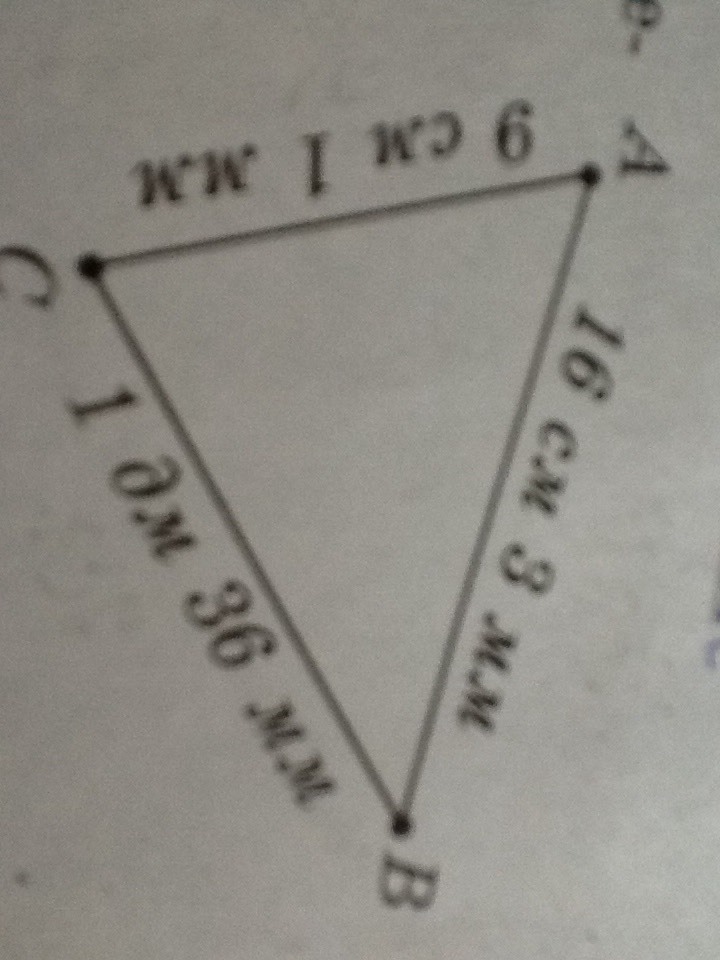 е-
A
9 см 1 мм
16 см 3 мм
C
1 дм 36 мм
B